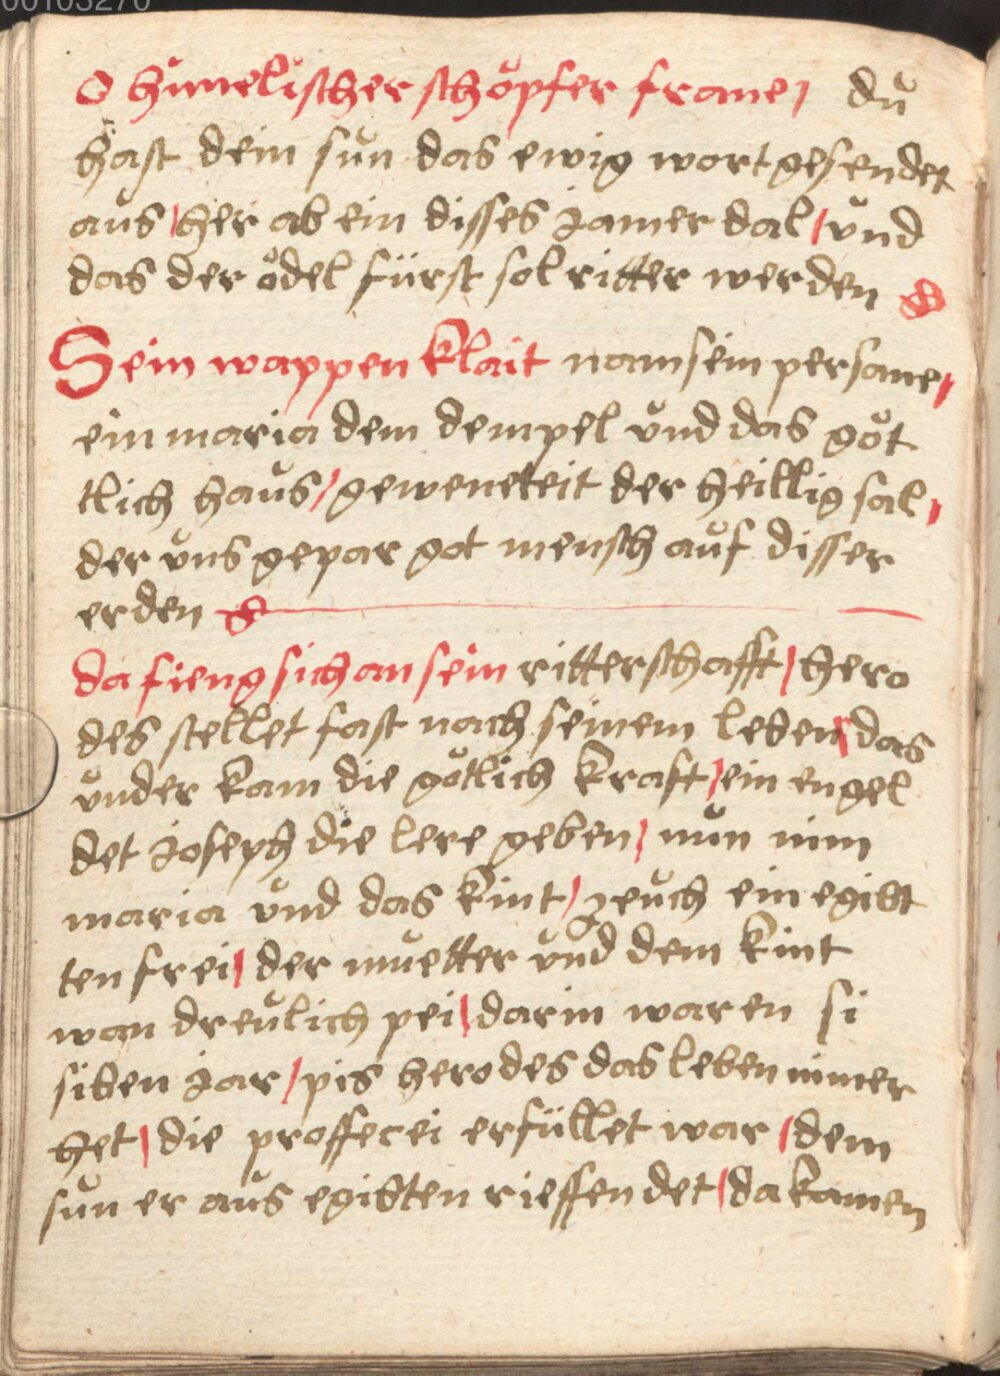 00103270
O himelischer schöpfer frone / dů
hast dein sůn das ewig wort gesendet
aůs / her ab ein disses jamer dal / vnd
das der ödel fürst sol ritter werden
Sein wappen klait nam sein persone /
ein maria dem dempel vnd das göt
tlich haůs / geweneteit der heillig sal /
der vns gepar got mensch aůf disser
erden
da fieng sich an sein ritterschafft / hero
des stellet fast nach seinem leben / das
vnder kam die götlich kraft / ein engel
det joseph die lere geben / nůn nim
maria vnd das kint / zeůch ein egibt
ten frei / der muetter vnd dem kint
won dreůlich pei / darin waren si
siben jar / pis herodes das leben nimer
het / die proffecei erfüllet war / dem
sůn er aůs egibten rieffen det / da kamen